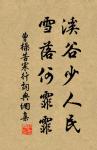 溪谷少人民
雪落何霏霏
曹操苦寒行詞典網集